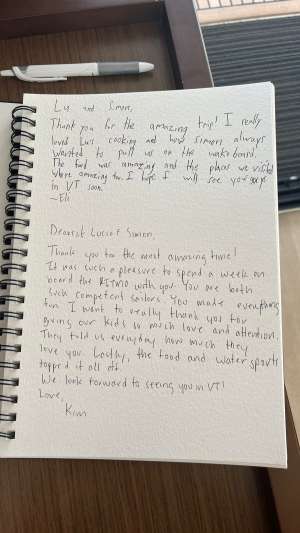 Lu and Simon,
Thank you for the amazing trip! I really
loved Lu's cooking and how Simon always
wanted to pull us on the wakeboard.
The food was amazing and the places we visited
where amazing too. I hope I will see you guys
in VT soon.
~Eli
Dearest Lucia & Simon,
Thank you for the most amazing time!
It was such a pleasure to spend a week on
board the RITMO with you. You are both
such competent sailors. You made everything
fun. I want to really thank you for
giving our kids so much love and attention.
They told us everyday how much they
love you. Lastly, the food and water sports
topped it all off.
We look forward to seeing you in VT!
Love,
Kim